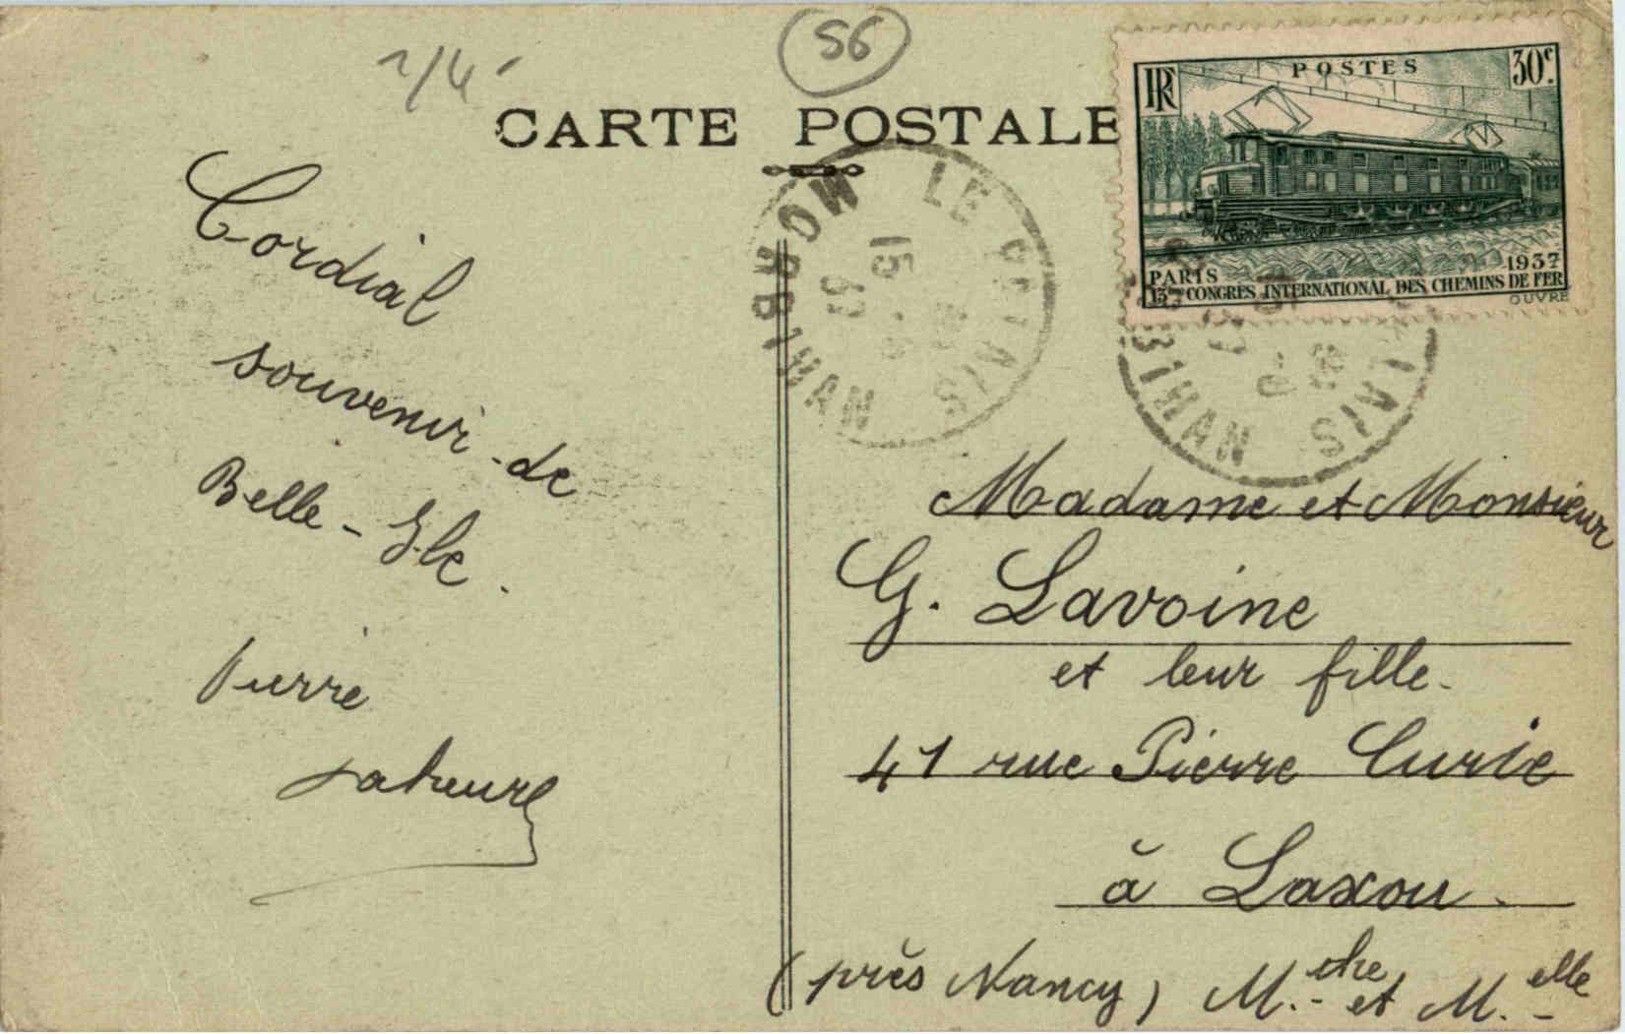 56
CARTE POSTALE
RF
POSTES
30c.
PARIS
1937
13ème CONGRÈS INTERNATIONAL DES CHEMINS DE FER
OUVRÉ
LE PALAIS
15
37
MORBIHAN
LAIS
37
BIHAN
Cordial
souvenir de
Belle-Ile.
Pierre
Madame et Monsieur
G. Lavoine
et leur fille.
41 rue Pierre Curie
à Laxou.
(près Nancy) M.the et M.elle